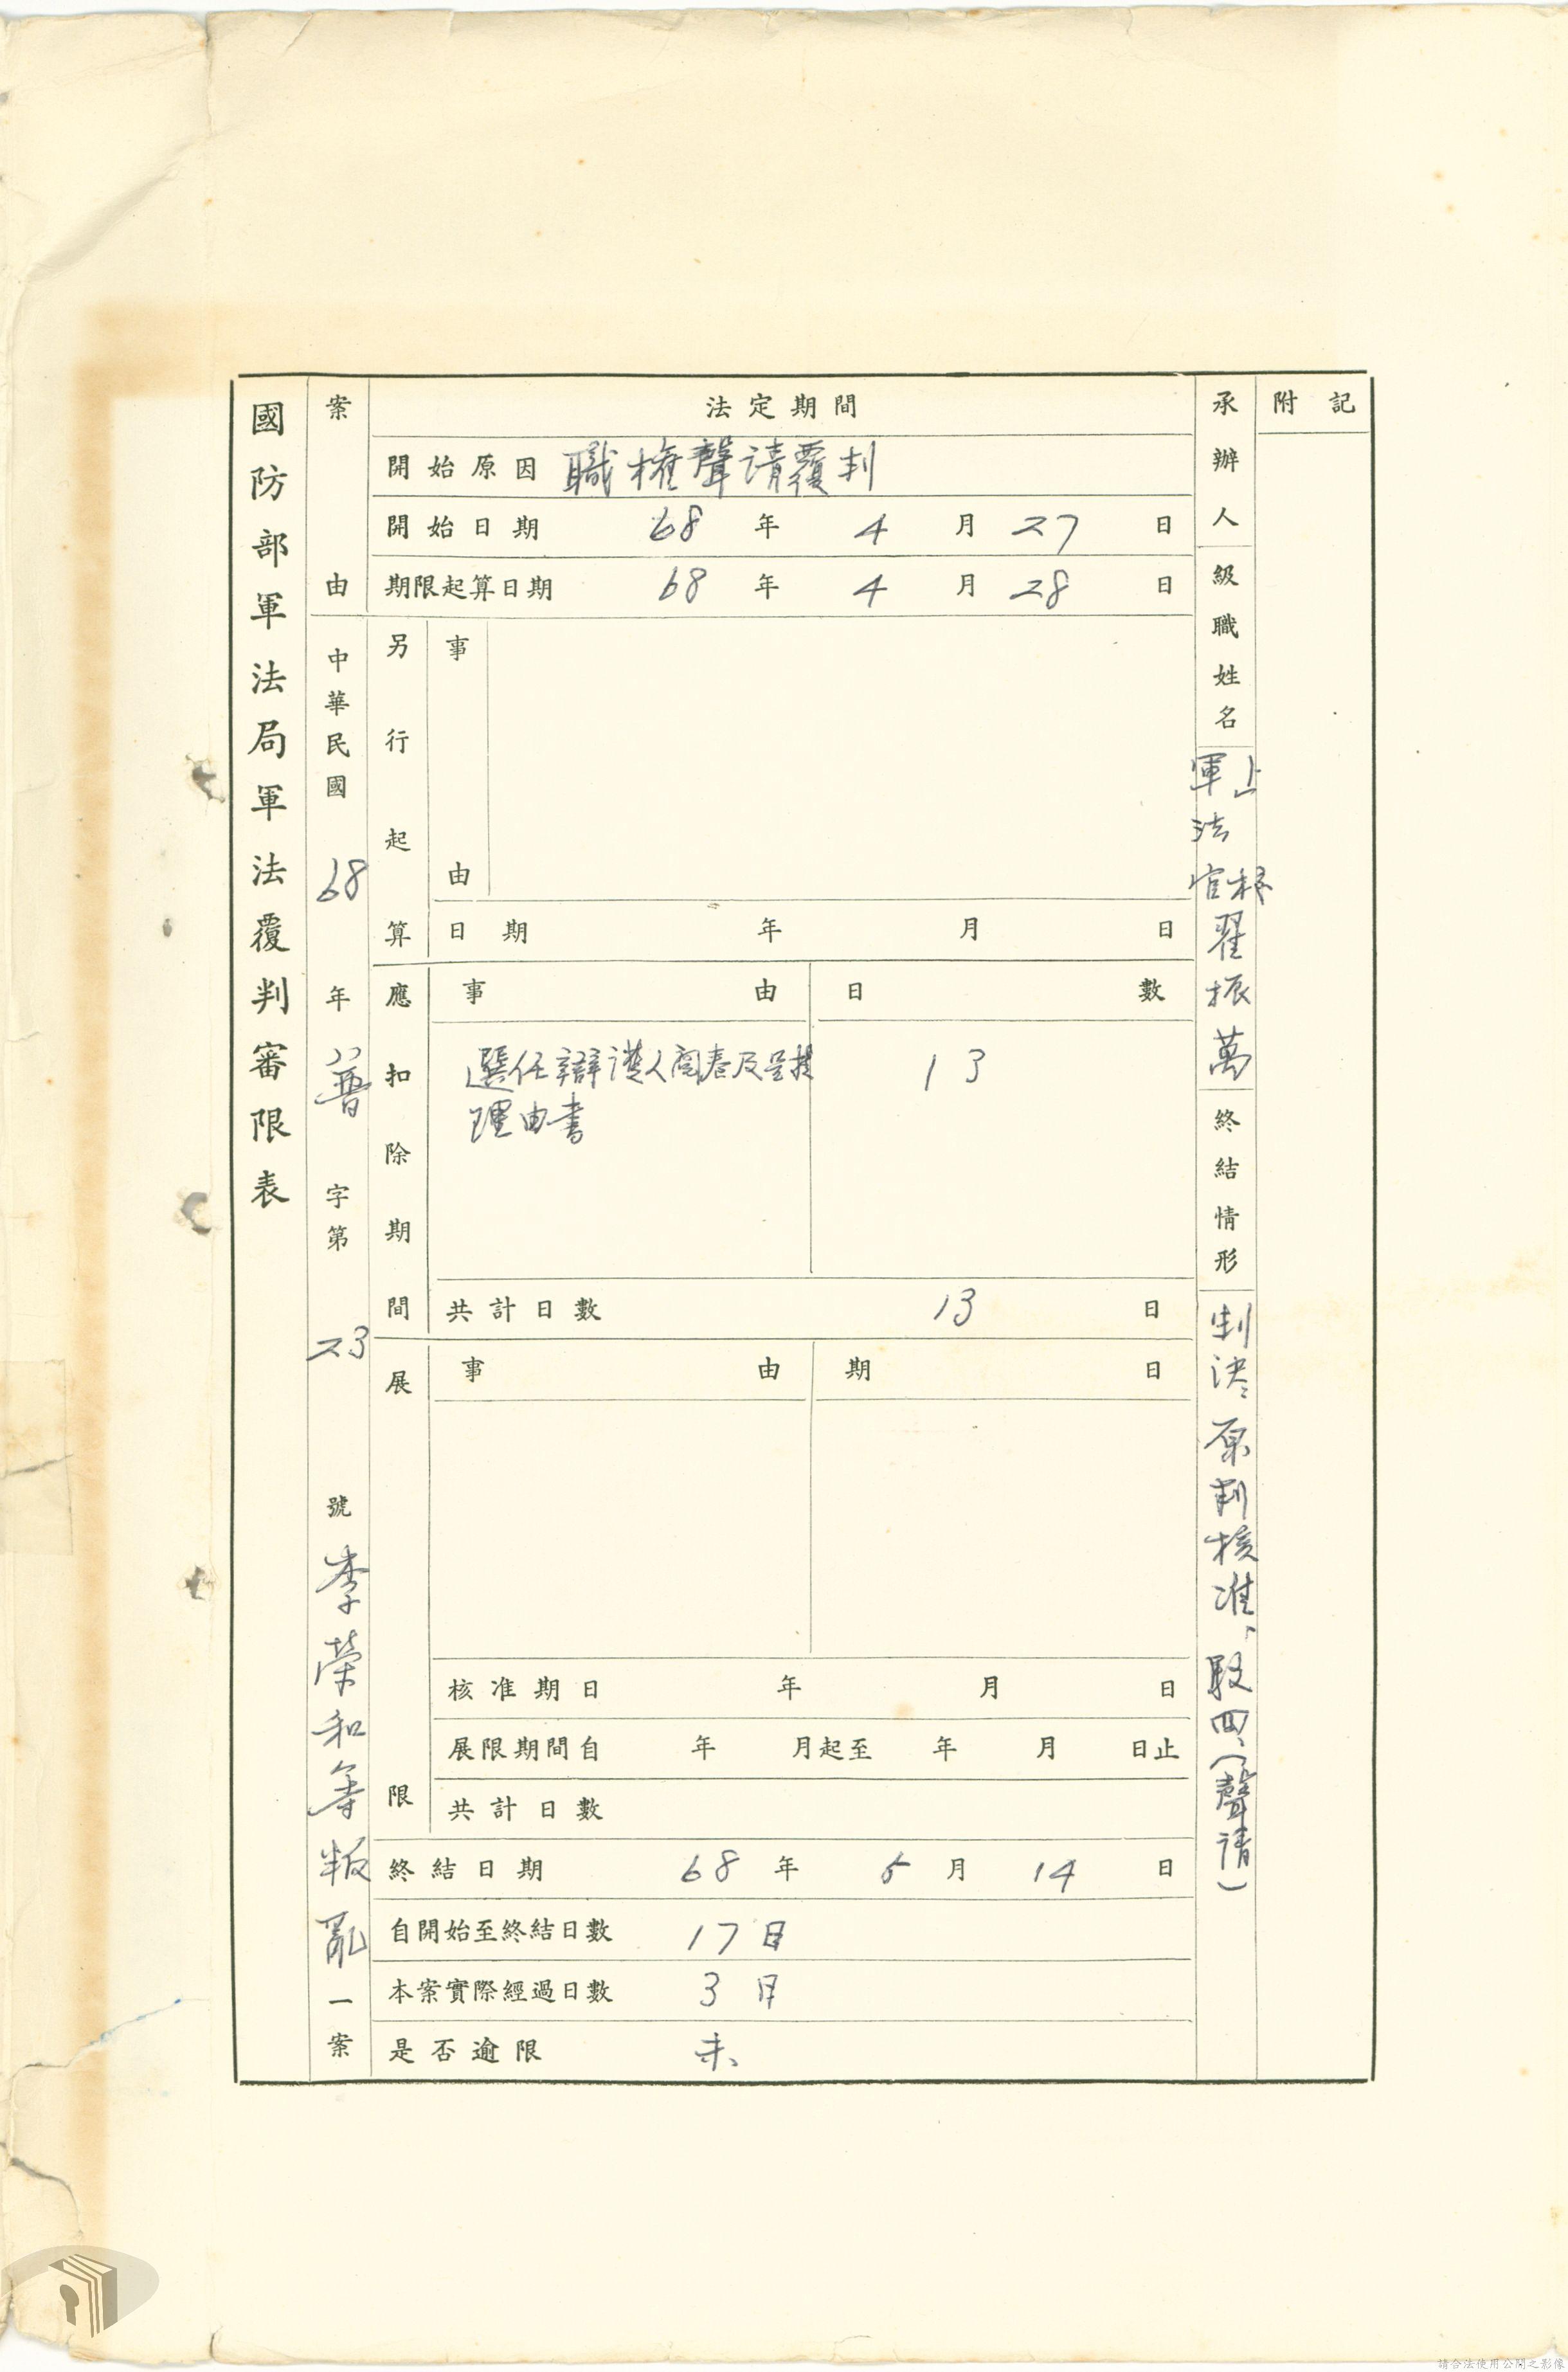 國防部軍法局軍法覆判審限表
案由
中華民國68年普字第23號李榮和等叛亂一案
法定期間
開始原因 職權聲請覆判
開始日期 68年4月27日
期限起算日期 68年4月28日
另行起算
事由
日期 年 月 日
應扣除期間
事由 日數
選任辯護人閱卷及呈提 13
理由書
共計日數 13日
展限
事由 期日
核准期日 年 月 日
展限期間自 年 月起至 年 月 日止
共計日數
終結日期 68年5月14日
自開始至終結日數 17日
本案實際經過日數 3日
是否逾限 未
承辦人級職姓名
上校
軍法官
翟振萬
終結情形
判決原判核准、駁回、(聲請)
附記
請合法使用公開之影像